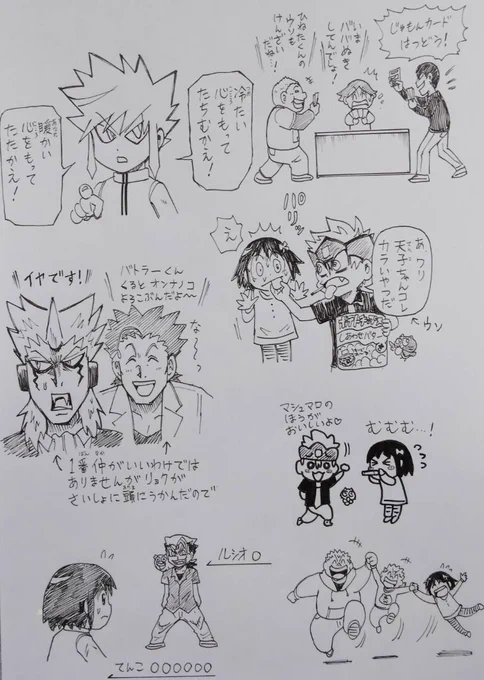 じゅもんカード
はつどう!
いま
ババぬき
してんでしょ!
ひねたくんの
ウソも
けんざい
だね…!
冷たい
心をもって
たちむかえ!
暖かい
心をもって
たたかえ!
パリッ
え
あ、ワリ
天子ちゃんコレ
カラいやつだ
←ウソ
しあわせバター
イヤです!
バトラーくん
くるとオンナノコ
よろこぶんだよ〜
な〜っ
↑1番仲がいいわけでは
ありませんがリョクが
さいしょに頭にうかんだので
マシュマロの
ほうが
おいしいよ♡
むむむ…!
ルシオ○
てんこ○○○○○○